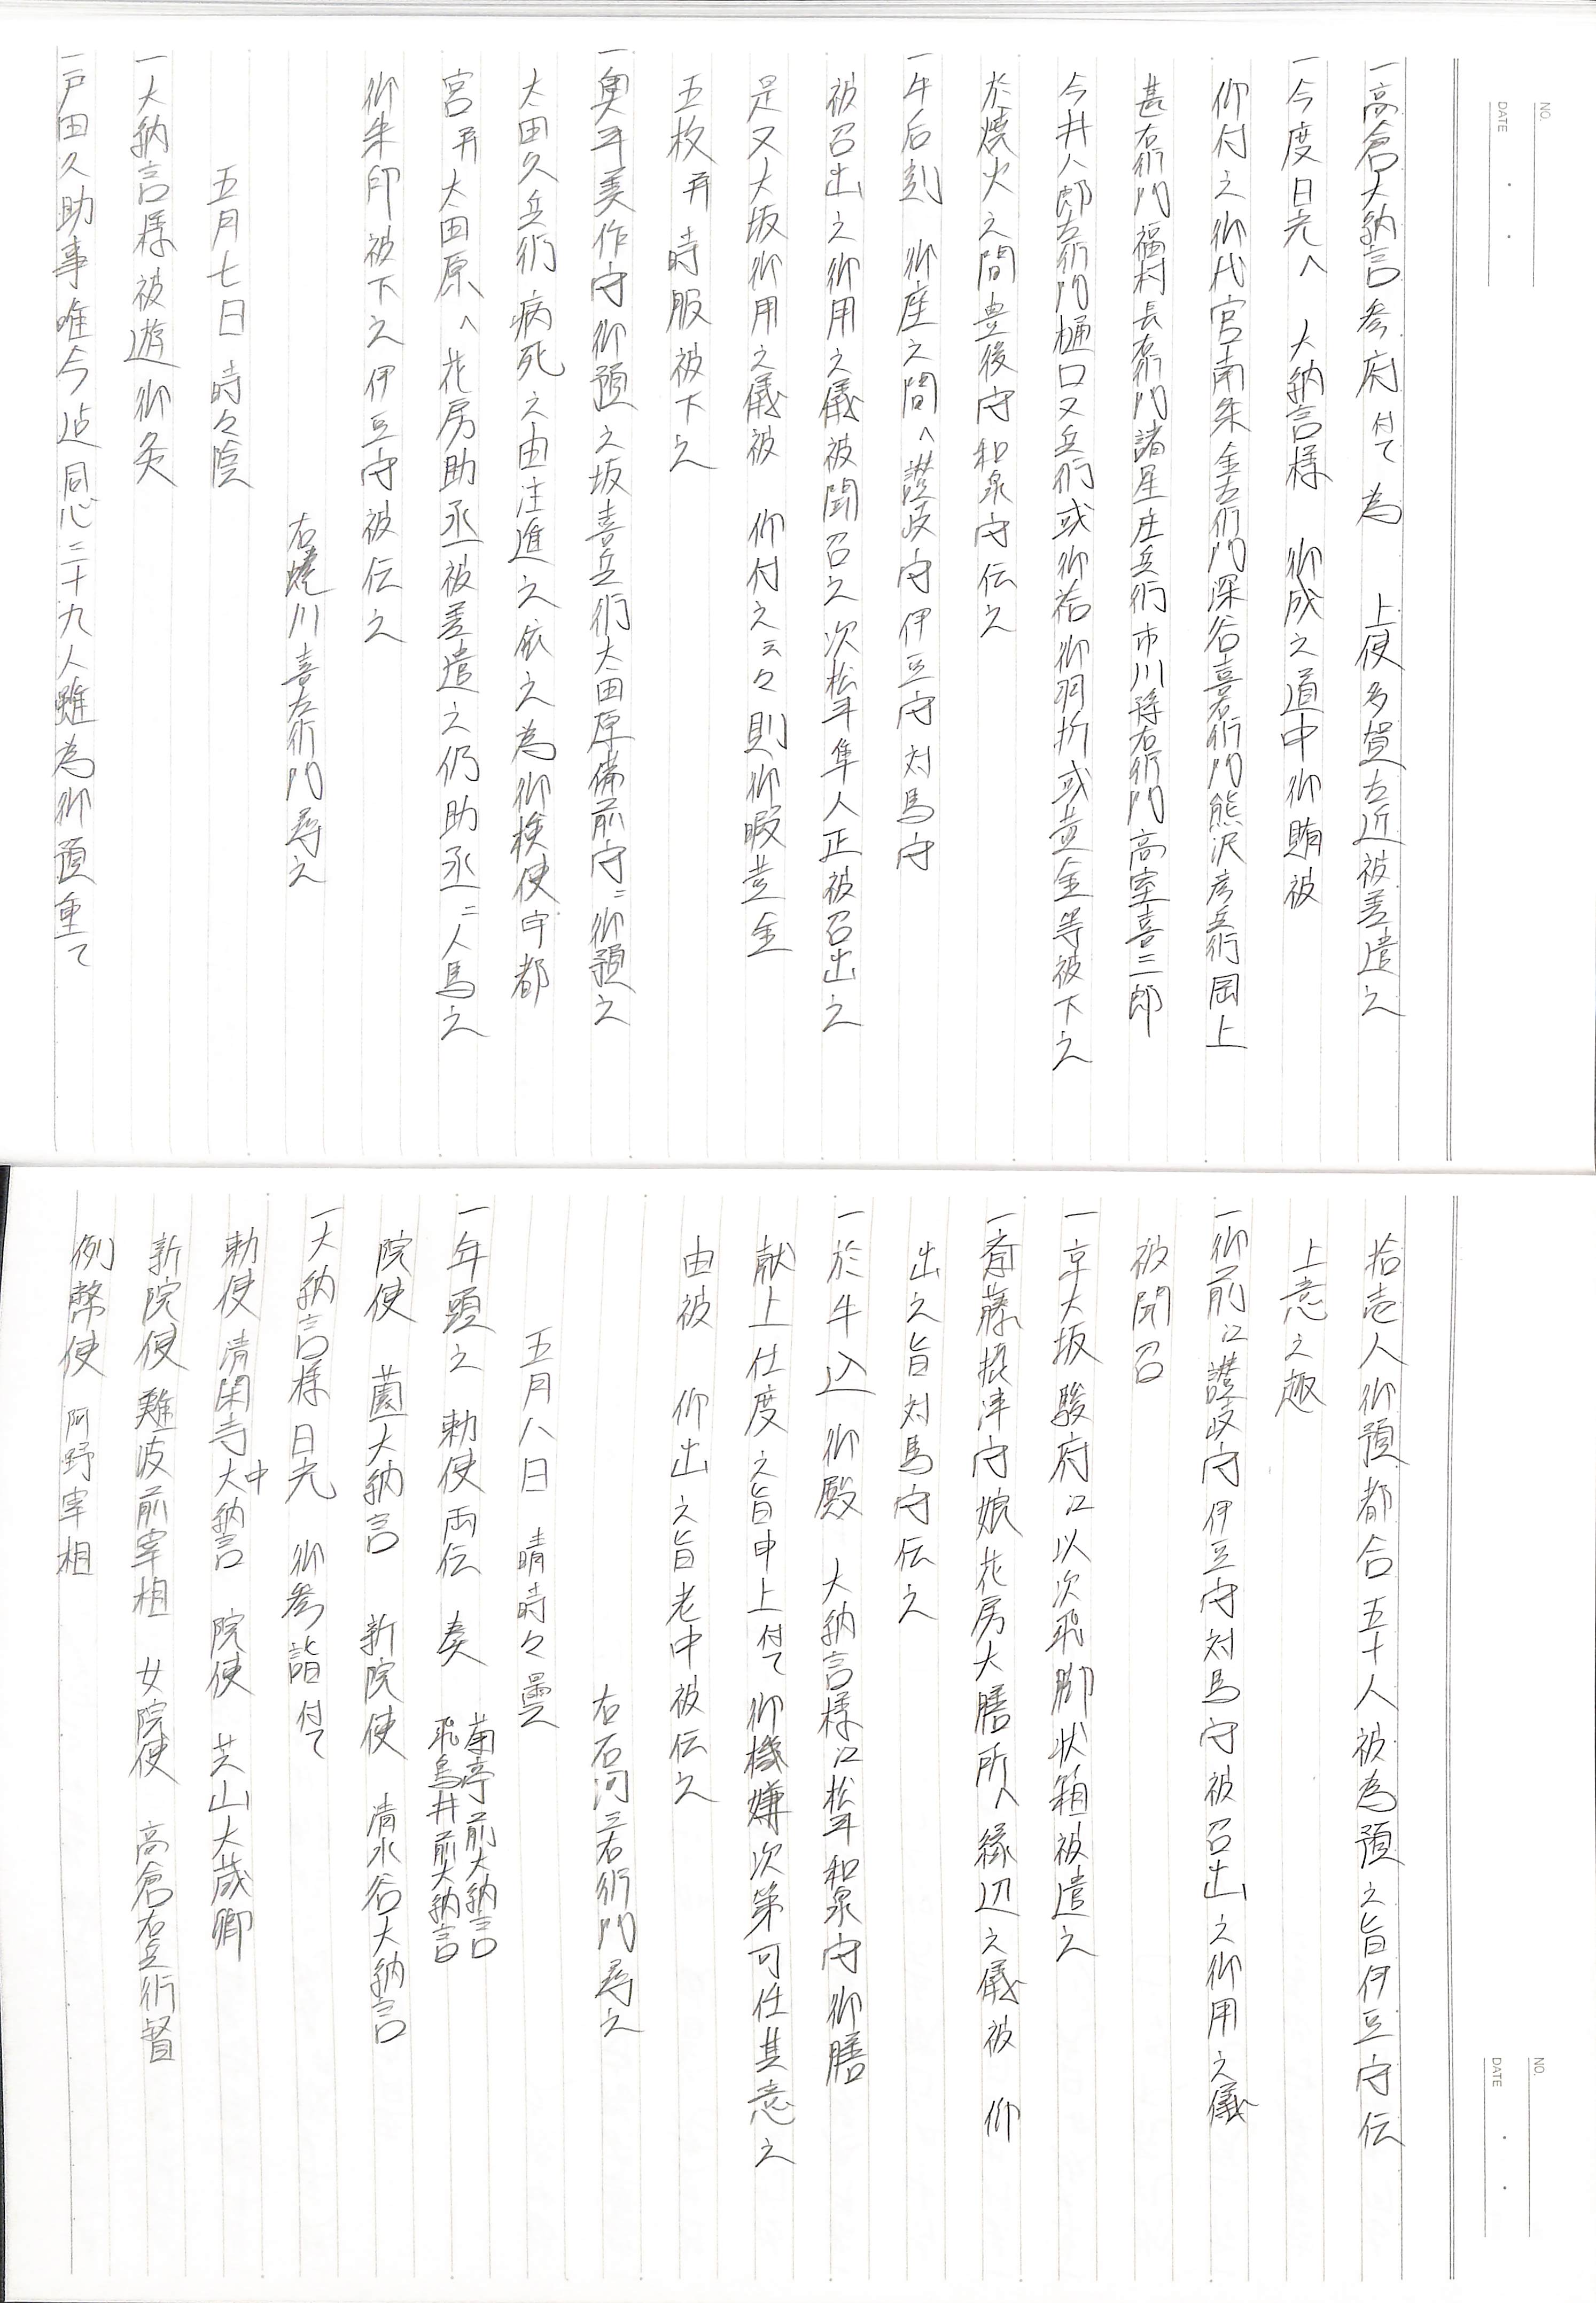 NO.
DATE
一高倉大納言参府付て為　上使多賀左近被差遣之
一今度日光へ　大納言様　御成之道中御賄被
仰付之御代官南条金左衛門深谷喜右衛門熊沢彦兵衛岡上
甚右衛門福村長右衛門諸星庄兵衛市川孫右衛門高室喜三郎
今井八郎左衛門樋口又兵衛或御袷御羽折或黄金等被下之
於焼火之間豊後守和泉守伝之
一午后刻　御座之間へ讃岐守伊豆守対馬守
被召出之御用之儀被聞召之次松平隼人正被召出之
是又大坂御用之儀被　仰付之云々則御暇黄金
五枚并時服被下之
一奥平美作守御預之坂喜兵衛太田原備前守ニ御預之
太田久兵衛病死之由注進之依之為御検使宇都
宮并太田原へ花房助丞被差遣之仍助丞ニ人馬之
御朱印被下之伊豆守被伝之
右蜷川喜左衛門尋之
五月七日　時々陰
一大納言様被遊御灸
一戸田久助事唯今迠同心三十九人雖為御預重て
NO.
DATE
拾壱人御預都合五十人被為預之旨伊豆守伝
上意之趣
一御前江讃岐守伊豆守対馬守被召出之御用之儀
被聞召
一京大坂駿府江以次飛脚状箱被遣之
一斎藤摂津守娘花房大膳所へ縁辺之儀被　仰
出之旨対馬守伝之
一於牛込御殿　大納言様江松平和泉守御膳
献上仕度之旨申上付て御機嫌次第可仕其意之
由被　仰出之旨老中被伝之
右石河三右衛門尋之
五月八日　晴時々曇
一年頭之　勅使両伝　奏　菊亭前大納言　飛鳥井前大納言
院使　薗大納言　新院使　清水谷大納言
一大納言様日光　御参詣付て
勅使　清閑寺大中納言　院使　芝山大蔵卿
新院使　難波前宰相　女院使　高倉右兵衛督
例幣使　阿野宰相